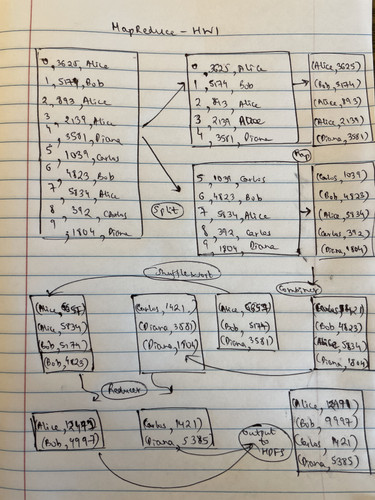 MapReduce - HW1
0, 3625, Alice
1, 5174, Bob
2, 893, Alice
3, 2139, Alice
4, 3581, Diana
5, 1039, Carlos
6, 4823, Bob
7, 5834, Alice
8, 392, Carlos
9, 1804, Diana
Split
0, 3625, Alice
1, 5174, Bob
2, 893, Alice
3, 2139, Alice
4, 3581, Diana
5, 1039, Carlos
6, 4823, Bob
7, 5834, Alice
8, 392, Carlos
9, 1804, Diana
Map
(Alice, 3625)
(Bob, 5174)
(Alice, 893)
(Alice, 2139)
(Diana, 3581)
(Carlos, 1039)
(Bob, 4823)
(Alice, 5834)
(Carlos, 392)
(Diana, 1804)
Combiner
(Bob, 4823)
(Alice, 5834)
(Diana, 1804)
(Bob, 5174)
(Diana, 3581)
(Alice, 5834)
(Bob, 5174)
(Bob, 4823)
Carlos, 1421
(Diana, 3581)
(Diana, 1804)
Reducer
(Bob, 9997)
Carlos, 1421
Diana, 5385
Output to HDFS
(Bob, 9997)
(Carlos, 1421)
(Diana, 5385)